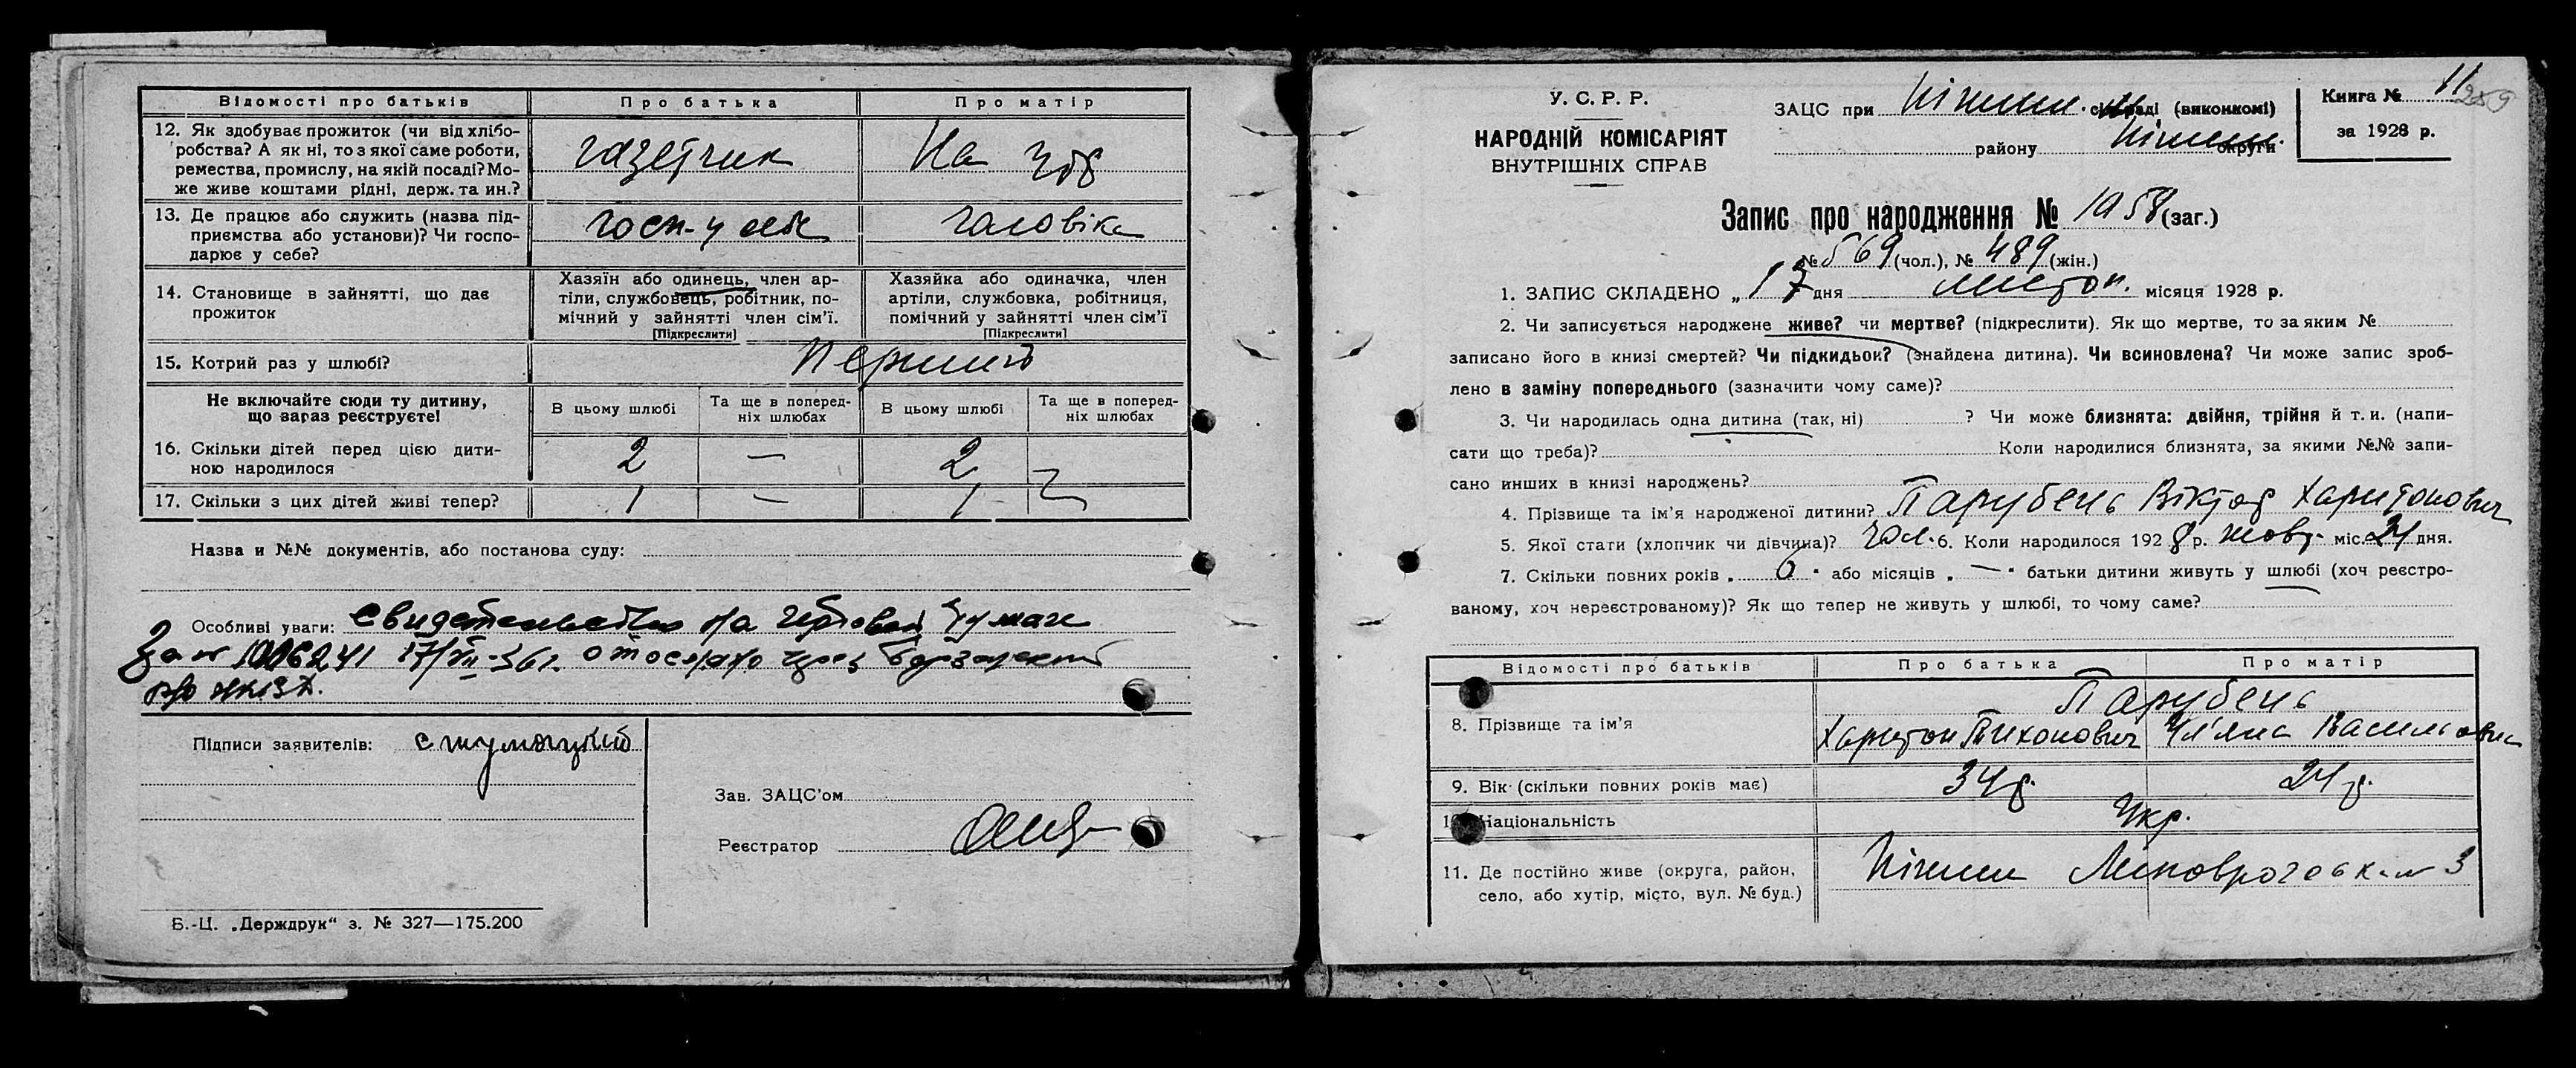 Відомості про батьків Про батька Про матір
12. Як здобуває прожиток (чи від хлібо-
робства? А як ні, то з якої саме роботи,
ремества, промислу, на якій посаді? Мо-
же живе коштами рідні, держ. та ин.?
газетчик На
13. Де працює або служить (назва під-
приємства або установи)? Чи госпо-
дарює у себе?
госп-у себе чоловіка
14. Становище в зайнятті, що дає
прожиток
Хазяїн або одинець, член ар-
тіли, службовець, робітник, по-
мічний у зайнятті член сім'ї.
[Підкреслити]
Хазяйка або одиначка, член
артіли, службовка, робітниця,
помічний у зайнятті член сім'ї
[Підкреслити]
15. Котрий раз у шлюбі? Перший
Не включайте сюди ту дитину,
що зараз реєструєте!
В цьому шлюбі
Та ще в поперед-
ніх шлюбах
В цьому шлюбі
Та ще в поперед-
ніх шлюбах
16. Скільки дітей перед цією дити-
ною народилося
2 — 2
17. Скільки з цих дітей живі тепер? 1 — 1
Назва и №№ документів, або постанова суду:
Особливі уваги: Свидетельство на гербовой бумаге
за № 17/VII-36г.
Підписи заявителів:
Зав. ЗАЦС'ом
Реєстратор
Б.-Ц. „Держдрук“ з. № 327—175.200
У. С. Р. Р.
НАРОДНІЙ КОМІСАРІЯТ
ВНУТРІШНІХ СПРАВ
ЗАЦС при Ніжин. сільраді (виконкомі)
району Ніжин. округи
Книга № 11
259
за 1928 р.
Запис про народження № 1058 (заг.)
№ 569 (чол.), № 489 (жін.)
1. ЗАПИС СКЛАДЕНО „17 дня листоп. місяця 1928 р.
2. Чи записується народжене живе? чи мертве? (підкреслити). Як що мертве, то за яким №
записано його в книзі смертей? Чи підкидьок? (знайдена дитина). Чи всиновлена? Чи може запис зроб-
лено в заміну попереднього (зазначити чому саме)?
3. Чи народилась одна дитина (так, ні) ? Чи може близнята: двійня, трійня й т. и. (напи-
сати що треба)? Коли народилися близнята, за якими №№ запи-
сано инших в книзі народжень?
4. Прізвище та ім'я народженої дитини? Парубець Віктор Харитонович
5. Якої стати (хлопчик чи дівчина)? чол. 6. Коли народилося 1928 р. жовт. міс. 24 дня.
7. Скільки повних років „ 6 “ або місяців „ — “ батьки дитини живуть у шлюбі (хоч реєстро-
ваному, хоч нереєстрованому)? Як що тепер не живуть у шлюбі, то чому саме?
Відомості про батьків Про батька Про матір
8. Прізвище та ім'я
Парубець
Харитон Тихонович Ул'яна Васильовна
9. Вік (скільки повних років має) 34 р. 24 р.
10. Національність Укр.
11. Де постійно живе (округа, район,
село, або хутір, місто, вул. № буд.)
Ніжин № 3